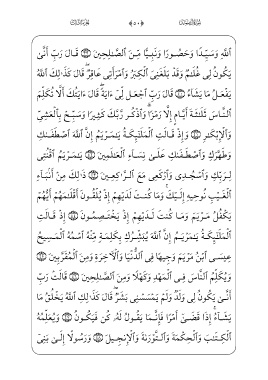 ٱللَّهِ وَسَيِّدًا وَحَصُورًا وَنَبِيًّا مِّنَ ٱلصَّٰلِحِينَ ۝ قَالَ رَبِّ أَنَّىٰ
يَكُونُ لِى غُلَٰمٌ وَقَدْ بَلَغَنِىَ ٱلْكِبَرُ وَٱمْرَأَتِى عَاقِرٌ ۖ قَالَ كَذَٰلِكَ ٱللَّهُ
يَفْعَلُ مَا يَشَآءُ ۝ قَالَ رَبِّ ٱجْعَل لِّىٓ ءَايَةً ۖ قَالَ ءَايَتُكَ أَلَّا تُكَلِّمَ
ٱلنَّاسَ ثَلَٰثَةَ أَيَّامٍ إِلَّا رَمْزًا ۗ وَٱذْكُر رَّبَّكَ كَثِيرًا وَسَبِّحْ بِٱلْعَشِىِّ
وَٱلْإِبْكَٰرِ ۝ وَإِذْ قَالَتِ ٱلْمَلَٰٓئِكَةُ يَٰمَرْيَمُ إِنَّ ٱللَّهَ ٱصْطَفَىٰكِ
وَطَهَّرَكِ وَٱصْطَفَىٰكِ عَلَىٰ نِسَآءِ ٱلْعَٰلَمِينَ ۝ يَٰمَرْيَمُ ٱقْنُتِى
لِرَبِّكِ وَٱسْجُدِى وَٱرْكَعِى مَعَ ٱلرَّٰكِعِينَ ۝ ذَٰلِكَ مِنْ أَنۢبَآءِ
ٱلْغَيْبِ نُوحِيهِ إِلَيْكَ ۚ وَمَا كُنتَ لَدَيْهِمْ إِذْ يُلْقُونَ أَقْلَٰمَهُمْ أَيُّهُمْ
يَكْفُلُ مَرْيَمَ وَمَا كُنتَ لَدَيْهِمْ إِذْ يَخْتَصِمُونَ ۝ إِذْ قَالَتِ
ٱلْمَلَٰٓئِكَةُ يَٰمَرْيَمُ إِنَّ ٱللَّهَ يُبَشِّرُكِ بِكَلِمَةٍ مِّنْهُ ٱسْمُهُ ٱلْمَسِيحُ
عِيسَى ٱبْنُ مَرْيَمَ وَجِيهًا فِى ٱلدُّنْيَا وَٱلْءَاخِرَةِ وَمِنَ ٱلْمُقَرَّبِينَ ۝
وَيُكَلِّمُ ٱلنَّاسَ فِى ٱلْمَهْدِ وَكَهْلًا وَمِنَ ٱلصَّٰلِحِينَ ۝ قَالَتْ رَبِّ
أَنَّىٰ يَكُونُ لِى وَلَدٌ وَلَمْ يَمْسَسْنِى بَشَرٌ ۖ قَالَ كَذَٰلِكِ ٱللَّهُ يَخْلُقُ مَا
يَشَآءُ ۚ إِذَا قَضَىٰٓ أَمْرًا فَإِنَّمَا يَقُولُ لَهُۥ كُن فَيَكُونُ ۝ وَيُعَلِّمُهُ
ٱلْكِتَٰبَ وَٱلْحِكْمَةَ وَٱلتَّوْرَىٰةَ وَٱلْإِنجِيلَ ۝ وَرَسُولًا إِلَىٰ بَنِىٓ